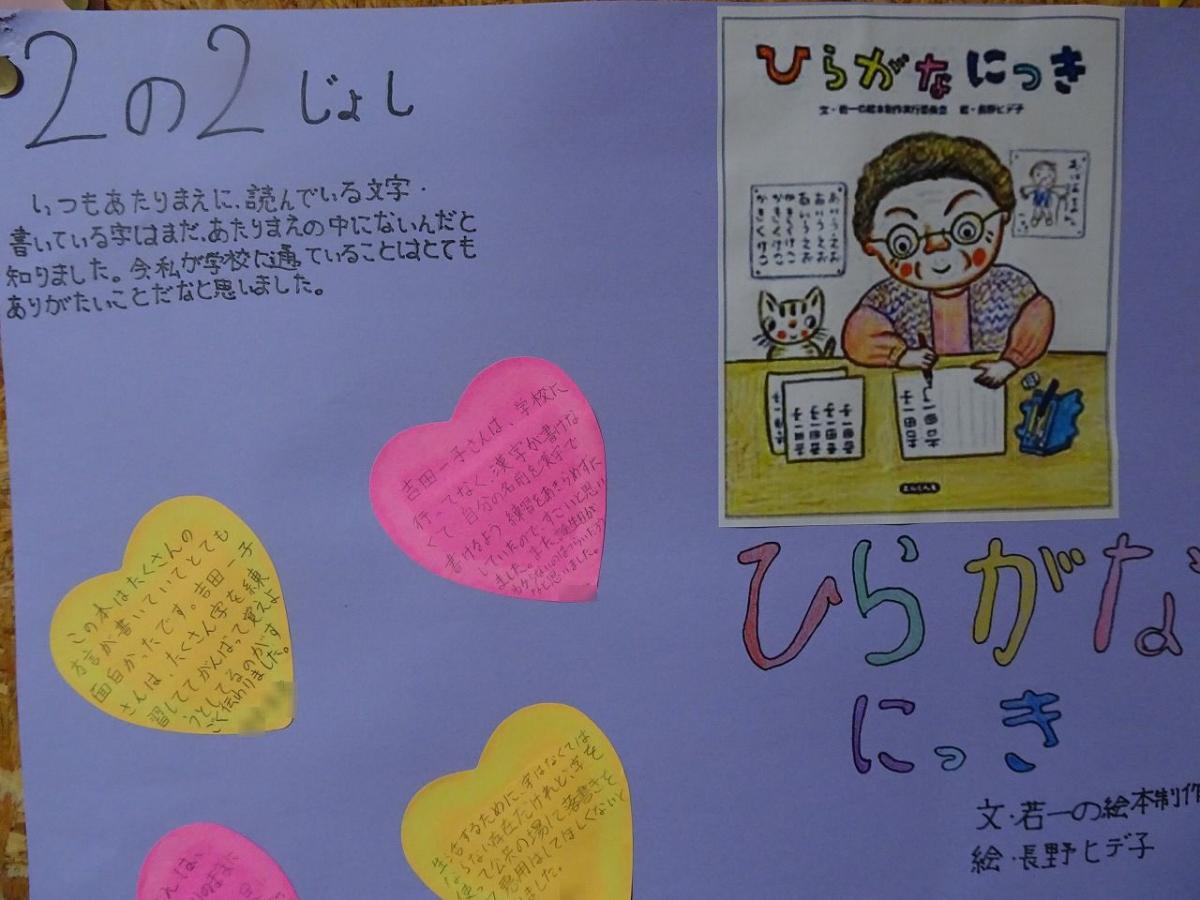 2の2 じょし
いつもあたりまえに、読んでいる文字・
書いている字はまだ、あたりまえの中にないんだと
知りました。今、私が学校に通っていることはとても
ありがたいことだなと思いました。
ひらがなにっき
文・若一の絵本制作実行委員会 絵・長野ヒデ子
あいうえお
あいうえお
かきくけこ
かきくけこ
吉田一子さんは、学校に
行ってなく、漢字が書けな
くて、自分の名前を漢字で
書けるよう練習をあきらめずに
していたので、すごいと思い
ました。また、
なと思いました。
この本はたくさんの
方言が書いていてとても
面白かったです。吉田一子
さんは、たくさん字を練
習しててがんばって覚えよ
うとしてるのがす
ごく伝わりました。
生活するために、字はなくては
ならない存在だけれど、字を
使って公共の場に落書きを
悪用はしてほしくないと
ました。
ひらがな
にっき
文・若一の絵本制作
絵・長野ヒデ子